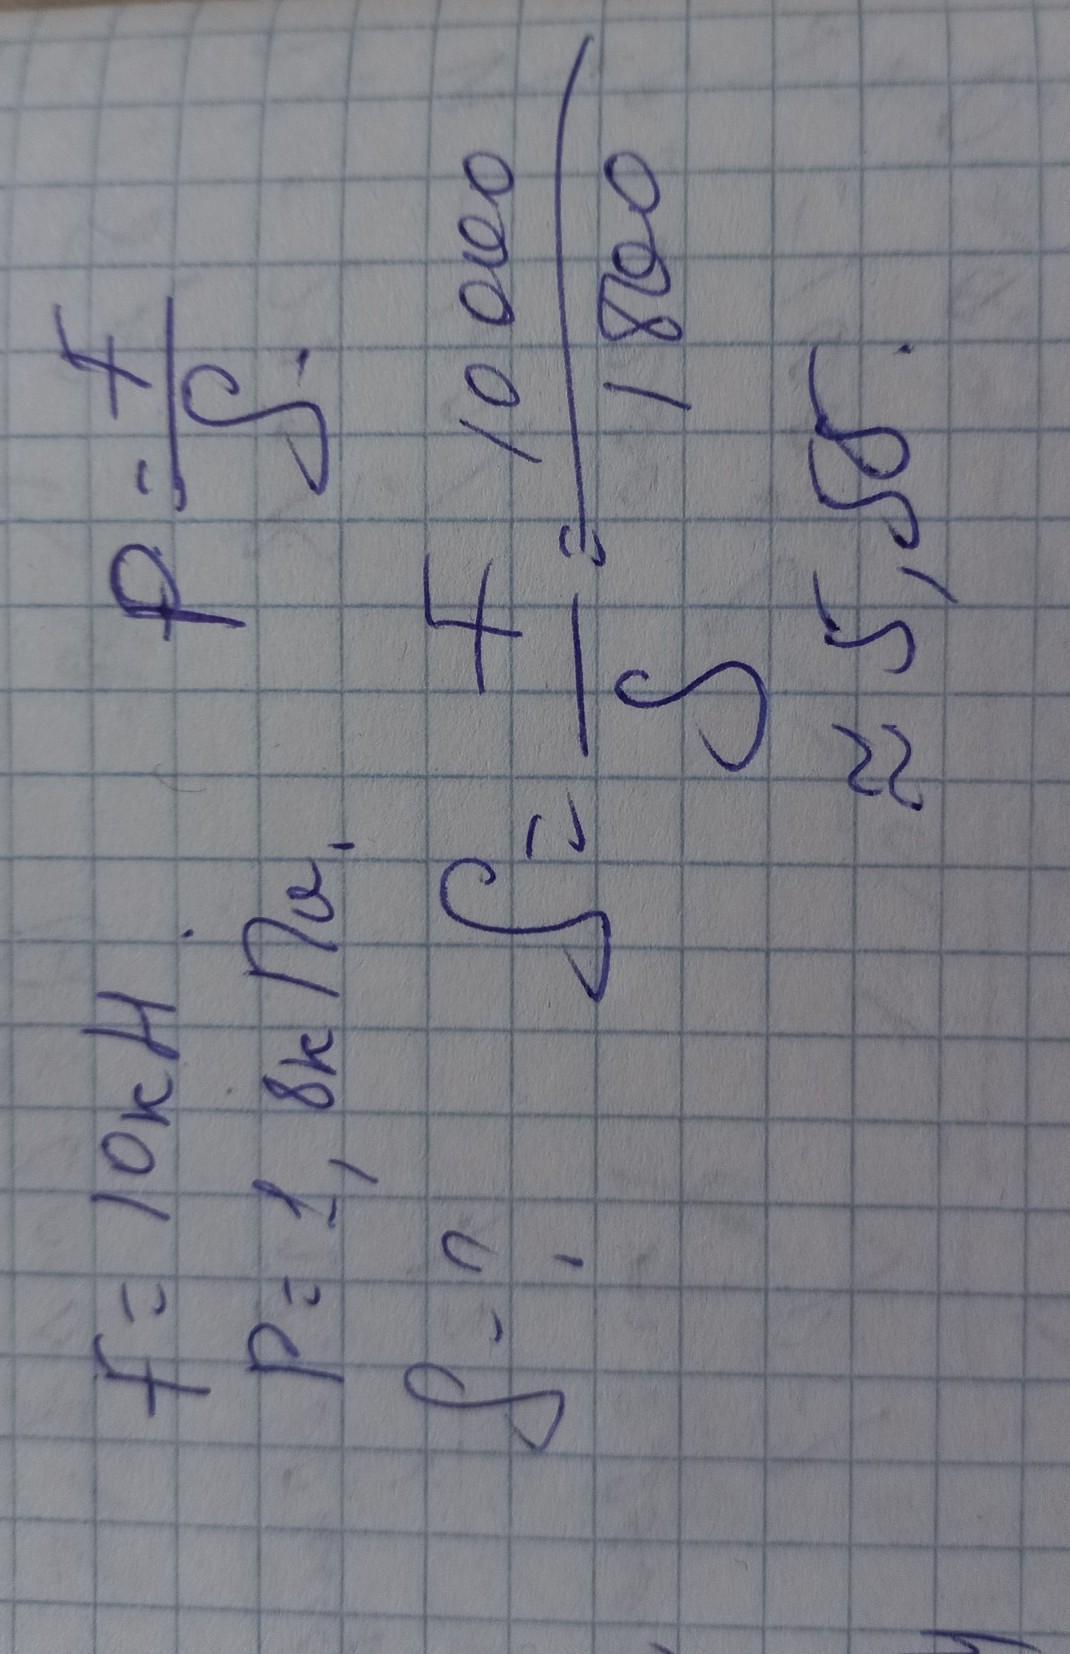 F = 10кН.
P = 1,8кПа.
S - ?
P = F/S.
S = F/S = 10 000/1800
≈ 5,56.